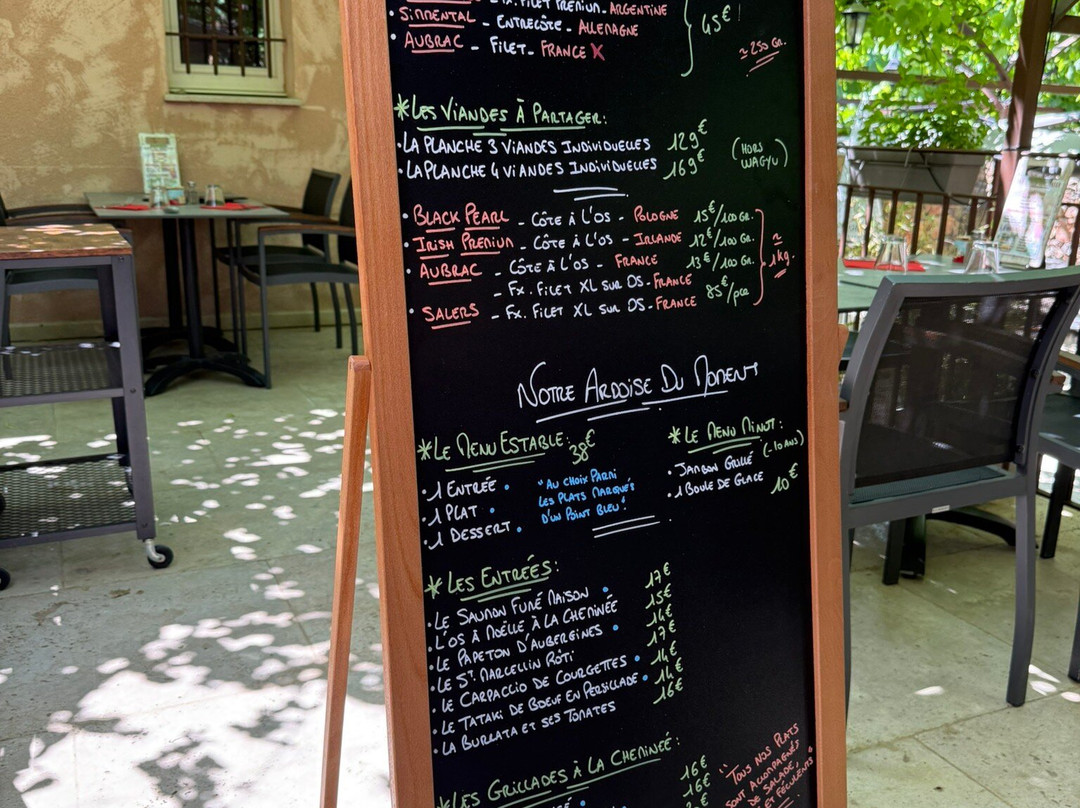 - Fx. Filet Premium - Argentine
• Simmental - Entrecôte - Allemagne
• Aubrac - Filet - France X
45€
≈ 250 Gr.
*Les Viandes à Partager:
• La Planche 3 Viandes Individuelles 129€
• La Planche 4 Viandes Individuelles 169€
(Hors Wagyu)
• Black Pearl - Côte à l'Os - Pologne 15€/100 Gr.
• Irish Premium - Côte à l'Os - Irlande 12€/100 Gr.
• Aubrac - Côte à l'Os - France 13€/100 Gr.
- Fx. Filet XL sur Os - France
• Salers - Fx. Filet XL sur Os - France 85€/pce
≈ 1kg.
Notre Ardoise Du Moment
*Le Menu Estable: 38€
• 1 Entrée •
• 1 Plat •
• 1 Dessert •
"Au choix Parmi
les plats marqués
d'un Point Bleu".
*Le Menu Minot:
(-10 ans)
• Jambon Grillé
• 1 Boule de Glace 10€
*Les Entrées:
• Le Saumon Fumé Maison • 17€
• L'Os à Moëlle à la Cheminée 15€
• Le Papeton d'Aubergines • 14€
• Le St. Marcellin Rôti 17€
• Le Carpaccio de Courgettes • 14€
• Le Tataki de Boeuf en Persillade • 14€
• La Burrata et ses Tomates 16€
*Les Grillades à La Cheminée:
16€
16€
"Tous nos Plats
sont accompagnés
de salade,
et féculents"